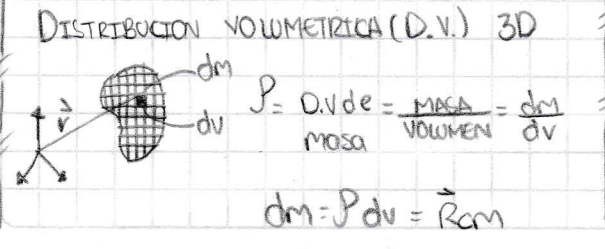 DISTRIBUCION VOLUMETRICA (D.V.) 3D
dm
dv
r⃗
ρ = D.V de masa = MASA/VOLUMEN = dm/dv
dm = ρ dv = R⃗cm